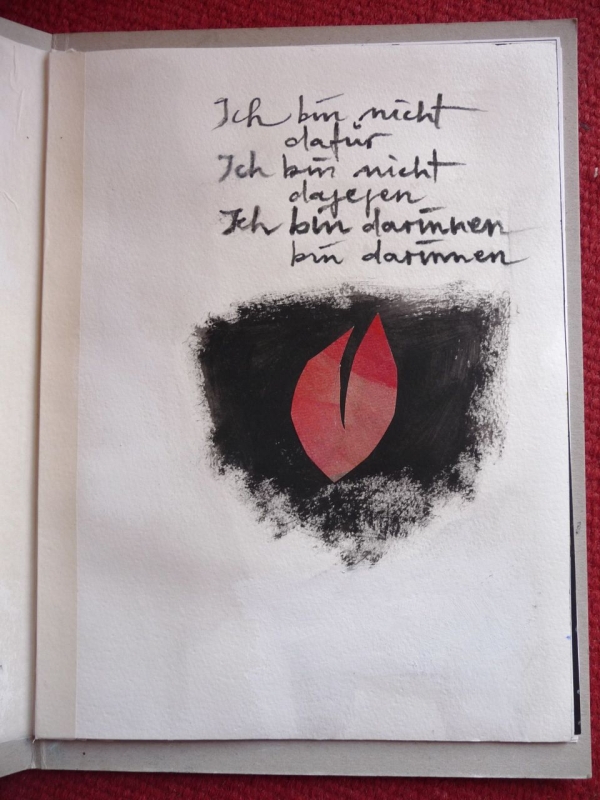 Ich bin nicht
dafür
Ich bin nicht
dagegen
Ich bin darinnen
bin darinnen